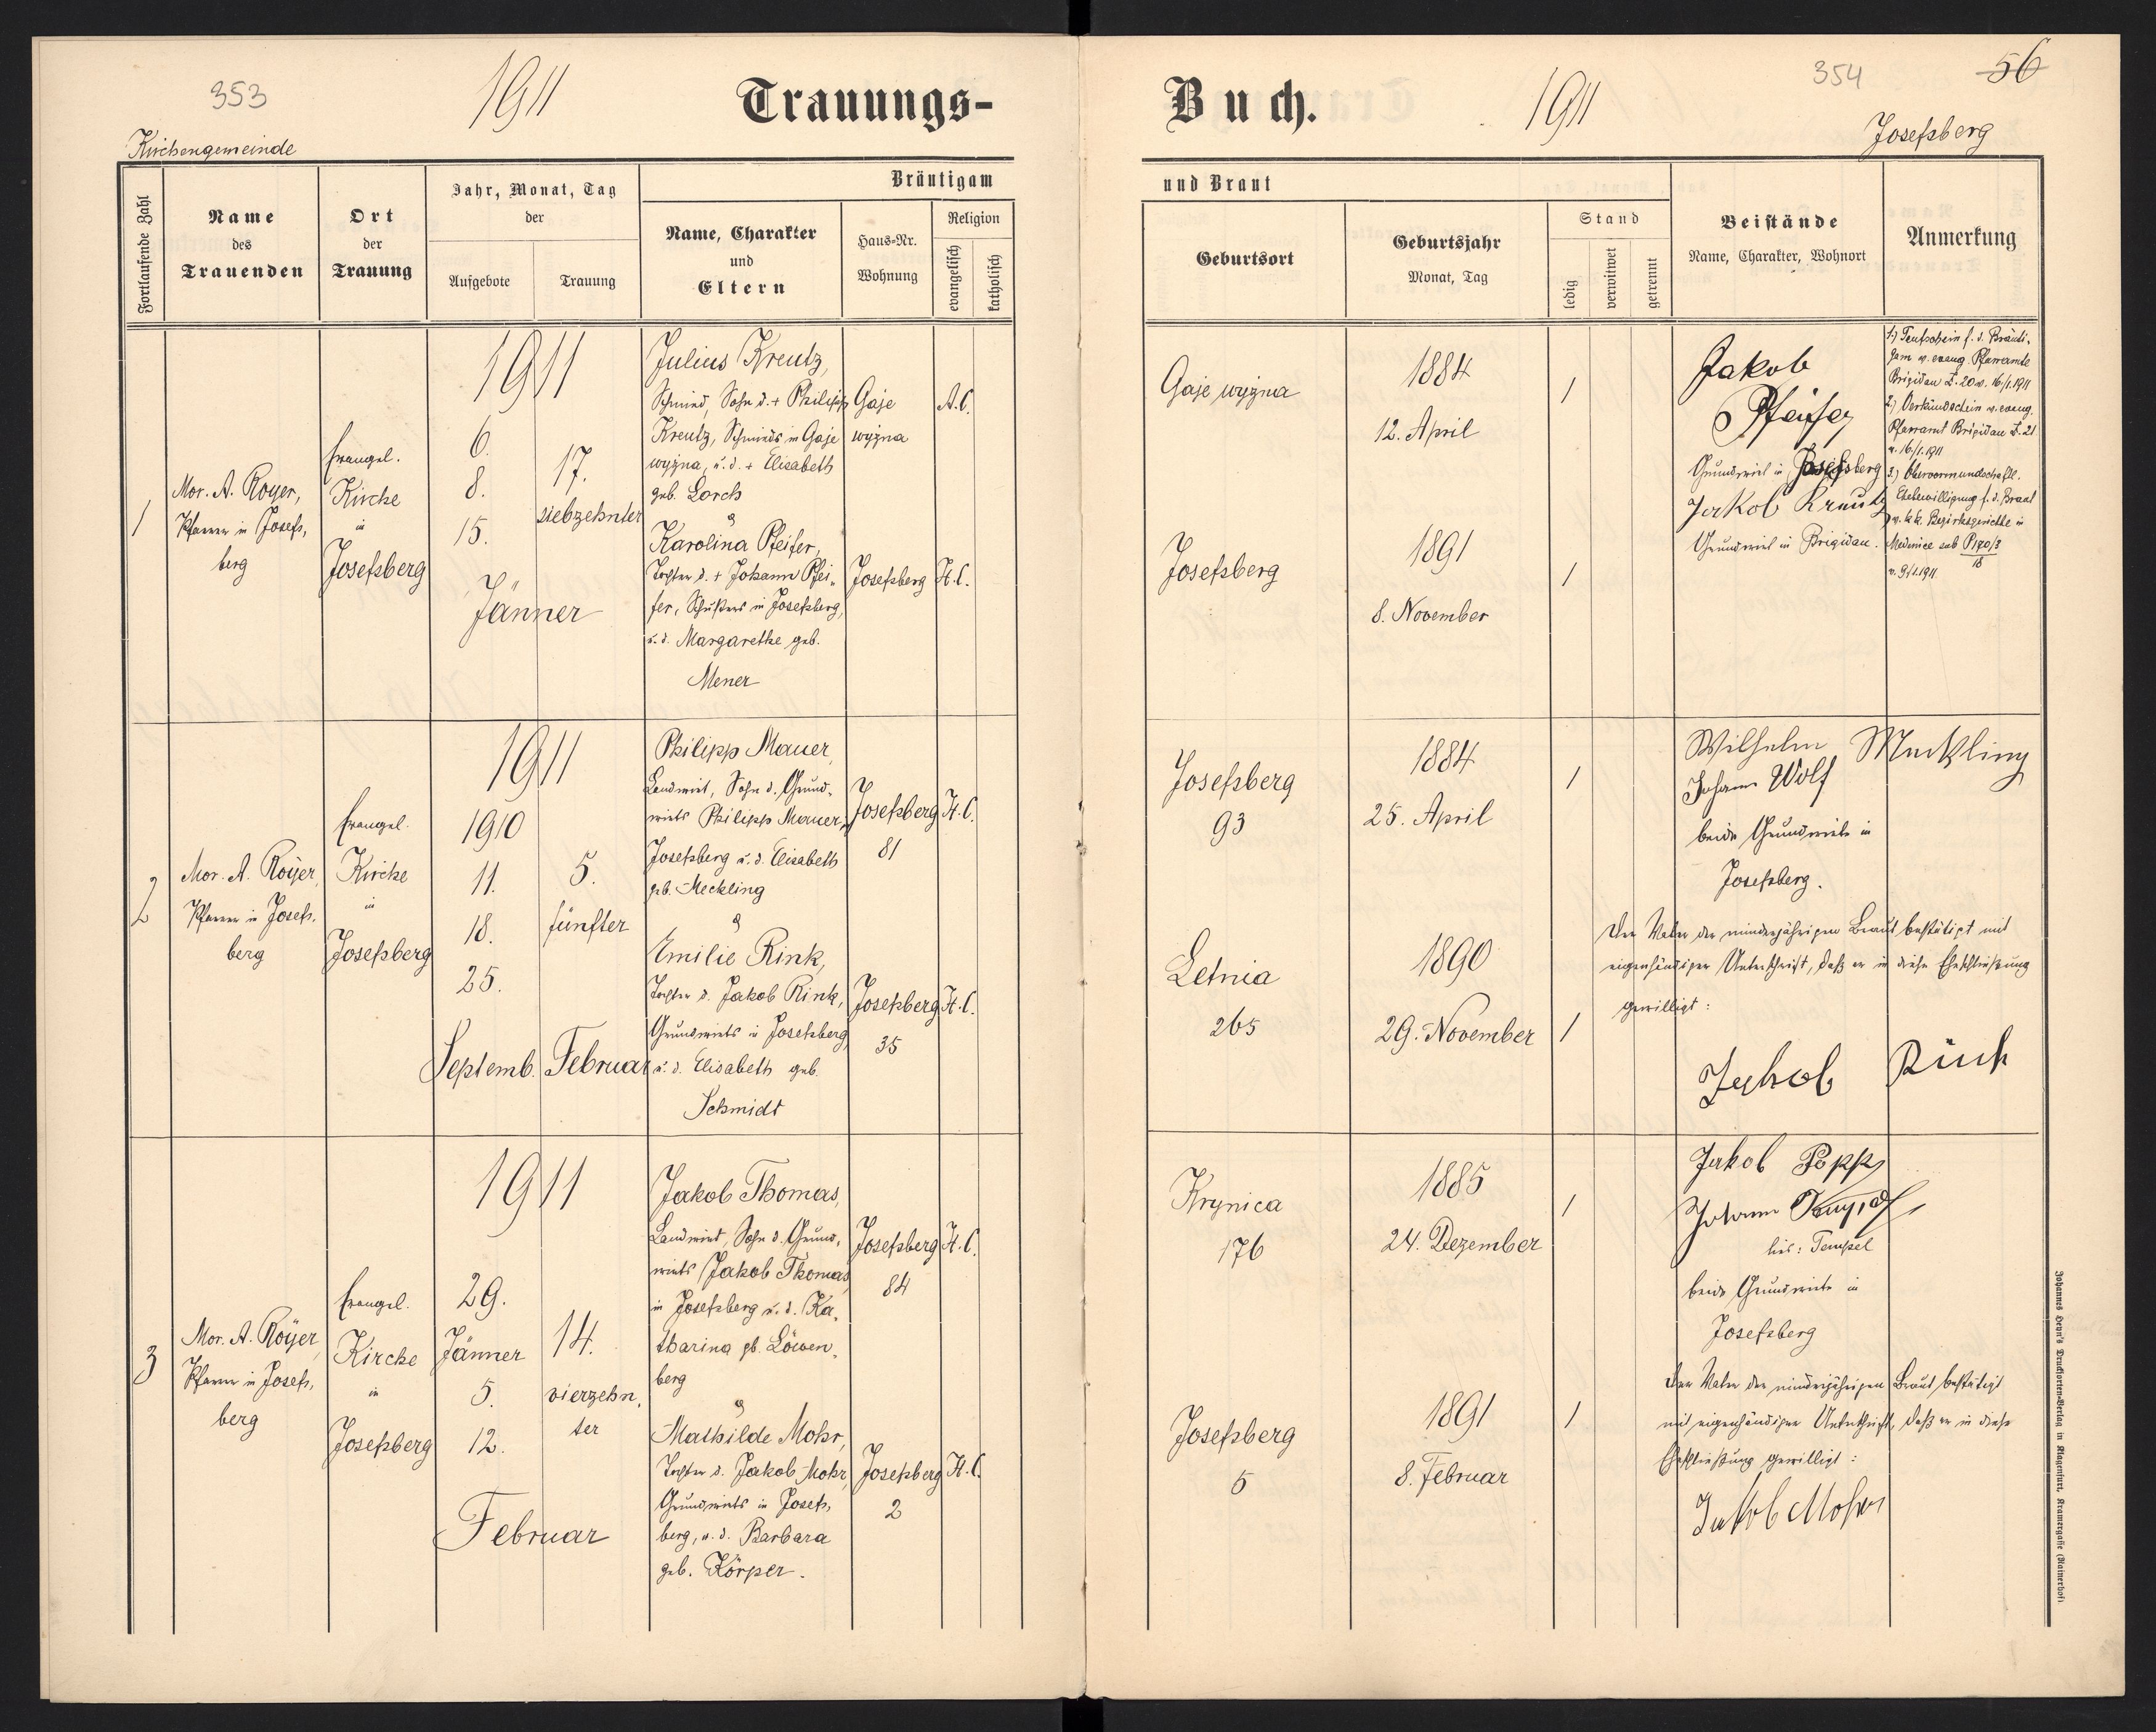 353
1911
Trauungs-
Kirchengemeinde
Fortlaufende Zahl
Name
des
Trauenden
Ort
der
Trauung
Jahr, Monat, Tag
der
Aufgebote
Trauung
Bräutigam
Name, Charakter
und
Eltern
Haus-Nr.
Wohnung
Religion
evangelisch
katholisch
1
Mor. A. Royer,
Pfarrer in Josefs,
berg
Evangel.
Kirche
in
Josefsberg
1911
6.
8.
15.
17.
siebzehnter
Jänner
Julius Kreutz,
Schmied, Sohn d. + Philipp
Kreutz, Schmieds in Gaje
wyżna, u. d. + Elisabeth
geb. Lorch
&
Karolina Pfeifer,
Tochter d. + Johann Pfei-
fer, Schusters in Josefsberg,
u. d. Margarethe geb.
Mener
Gaje
wyżna
A.C.
Josefsberg
H.C.
2
Mor. A. Royer,
Pfarrer in Josefs,
berg
Evangel.
Kirche
in
Josefsberg
1911
1910
11.
18.
25.
Septemb.
5.
fünfter
Februar
Philipp Mauer,
Landwirt, Sohn d. Grund-
wirts Philipp Mauer,
Josefsberg u. d. Elisabeth
geb. Meckling
&
Emilie Rink,
Tochter d. Jakob Rink,
Grundwirts in Josefsberg,
u. d. Elisabeth geb.
Schmidt
Josefsberg
81
H.C.
Josefsberg
35
H.C.
3
Mor. A. Royer,
Pfarrer in Josefs,
berg
Evangel.
Kirche
in
Josefsberg
1911
29.
Jänner
5.
12.
14.
vierzehn,
ter
Februar
Jakob Thomas,
Landwirt, Sohn d. Grund-
wirts Jakob Thomas,
in Josefsberg u. d. Ka-
tharina gb. Löwen-
berg
&
Mathilde Mohr,
Tochter d. Jakob Mohr,
Grundwirts in Josefs,
berg, u. d. Barbara
geb. Körper.
Josefsberg
84
H.C.
Josefsberg
2
H.C.
Buch.
1911
354
56
Josefsberg
und Braut
Geburtsort
Geburtsjahr
Monat, Tag
Stand
ledig
verwitwet
getrennt
Beistände
Name, Charakter, Wohnort
Anmerkung
Gaje wyżna
1884
12. April
1
Josefsberg
1891
8. November
1
Jakob
Pfeifer
Grundwirt in Josefsberg
Jakob Kreutz
Grundwirt in Brigidau.
1) Taufschein f. d. Bräuti-
gam v. evang. Pfarramte
Brigidau Z. 20 v. 16/1.1911
2) Verkündschein v. evang.
Pfarramt Brigidau Z. 21
v. 16/1.1911
3) Obervormundschaftl.
Ehebewilligung f. d. Braut
v. k.k. Bezirksgerichte in
Medenice sub P190/3
18
v. 9/1.1911
Josefsberg
93
1884
25. April
1
Letnia
265
1890
29. November
1
Wilhelm Meckling
Johann Wolf
beide Grundwirte in
Josefsberg.
Der Vater der minderjährigen Braut bestätigt mit
eigenhändiger Unterschrift, daß er in diese Eheschließung
gewilligt:
Jakob Rink
Krynica
176
1885
24. Dezember
1
Josefsberg
5
1891
8. Februar
1
Jakob Popp
Johann
lies: Tempel
beide Grundwirte in
Josefsberg
Der Vater der minderjährigen Braut bestätigt
mit eigenhändiger Unterschrift, daß er in diese
Eheschließung gewilligt:
Jakob Moher
Johannes Heyn's Drucksorten-Verlag in Klagenfurt, Kramergasse (Rainerhof)